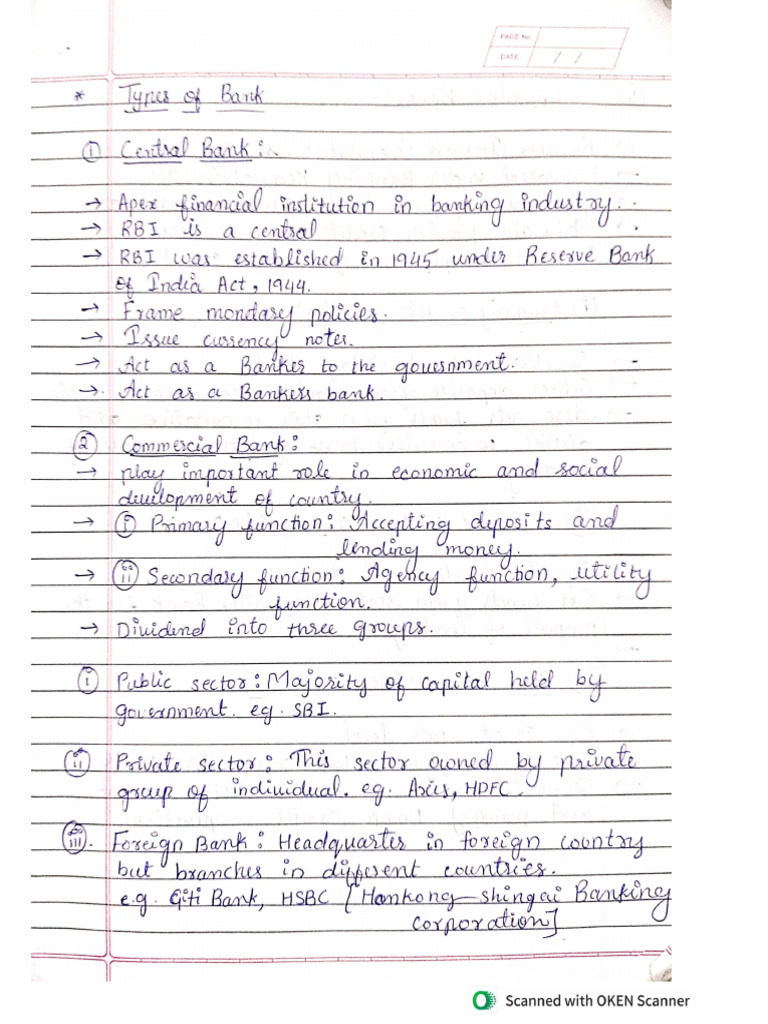 PAGE No.
DATE / /
* Types of Bank
① Central Bank :
→ Apex financial institution in banking industry.
→ RBI is a central
→ RBI was established in 1945 under Reserve Bank
of India Act, 1944.
→ Frame mondary policies.
→ Issue currency notes.
→ Act as a Banker to the government.
→ Act as a Bankers bank.
② Commercial Bank :
→ play important role in economic and social
development of country.
→ (i) Primary function : Accepting deposits and
lending money.
→ (ii) Secondary function : Agency function, utility
function.
→ Dividend into three groups.
(i) Public sector : Majority of capital held by
government. eg. SBI.
(ii) Private sector : This sector owned by private
group of individual. eg. Axis, HDFC.
(iii). Foreign Bank : Headquarter in foreign country
but branches in different countries.
e.g. Citi Bank, HSBC [Hankong-shingai Banking
corporation]
Scanned with OKEN Scanner